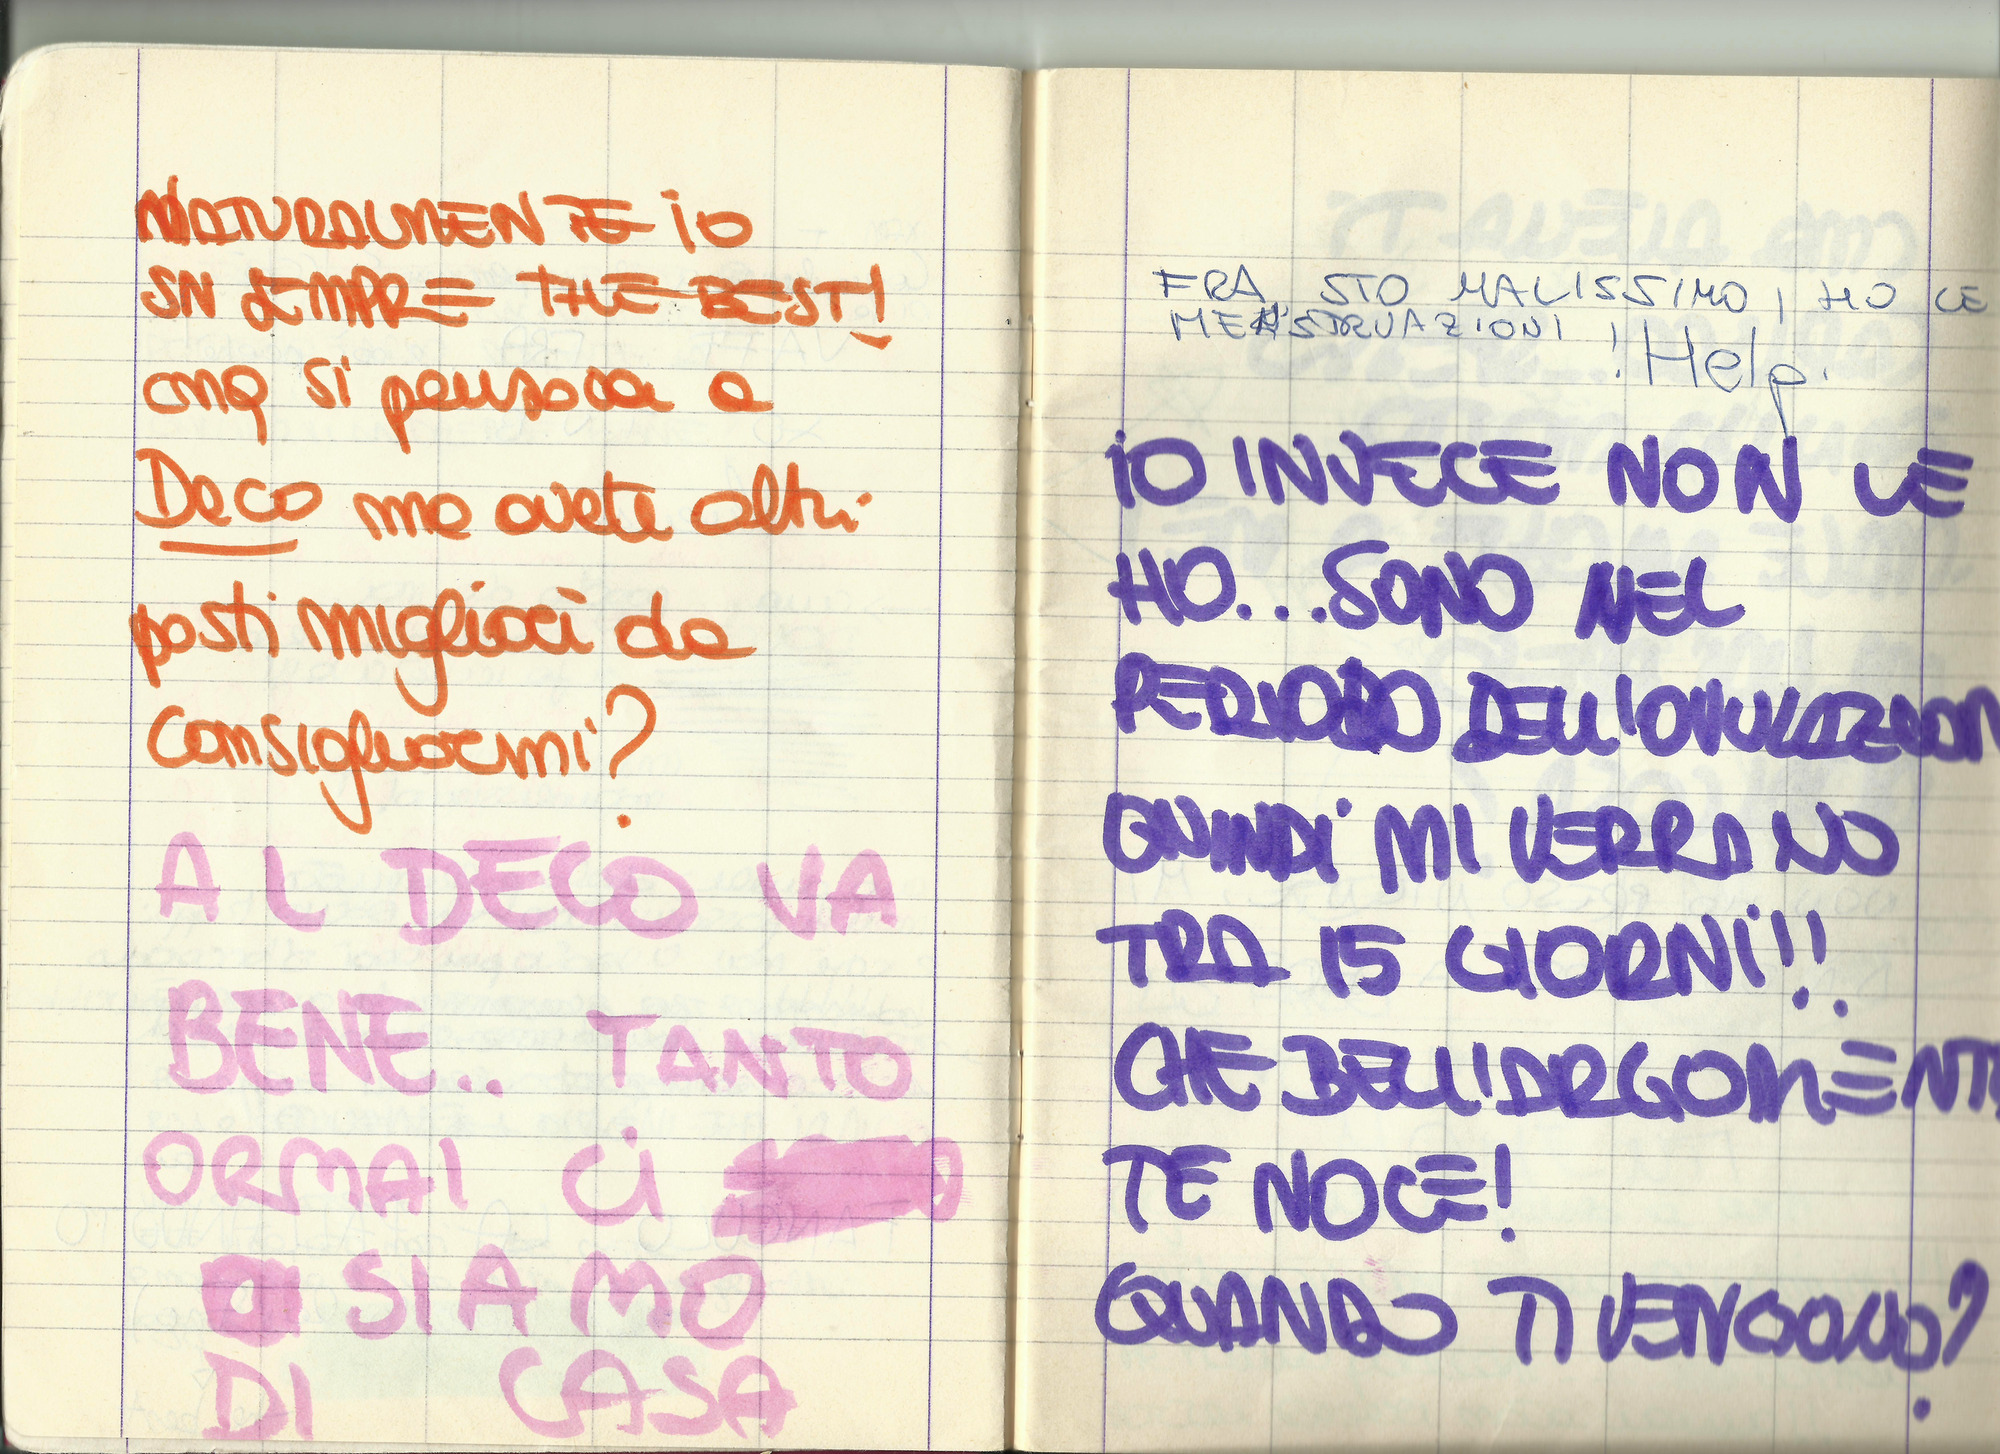 NATURALMENTE io
SN SEMPRE THE BEST!
cmq si pensava a
Deco ma avete altri
posti migliori da
consigliarmi?
AL DECO VA
BENE.. TANTO
ORMAI Ci
SIAMO
DI CASA
FRA, STO MALISSIMO, HO LE
MENSTRUAZIONI! Help.
iO INVECE NON LE
HO...SONO NEL
PERIODO DELL'OVULAZION
QUINDi MI VERRANO
TRA 15 GIORNi!!
CHE BELL'ARGOMENTO
TE NOCE!
QUANDO TI VENGONO?